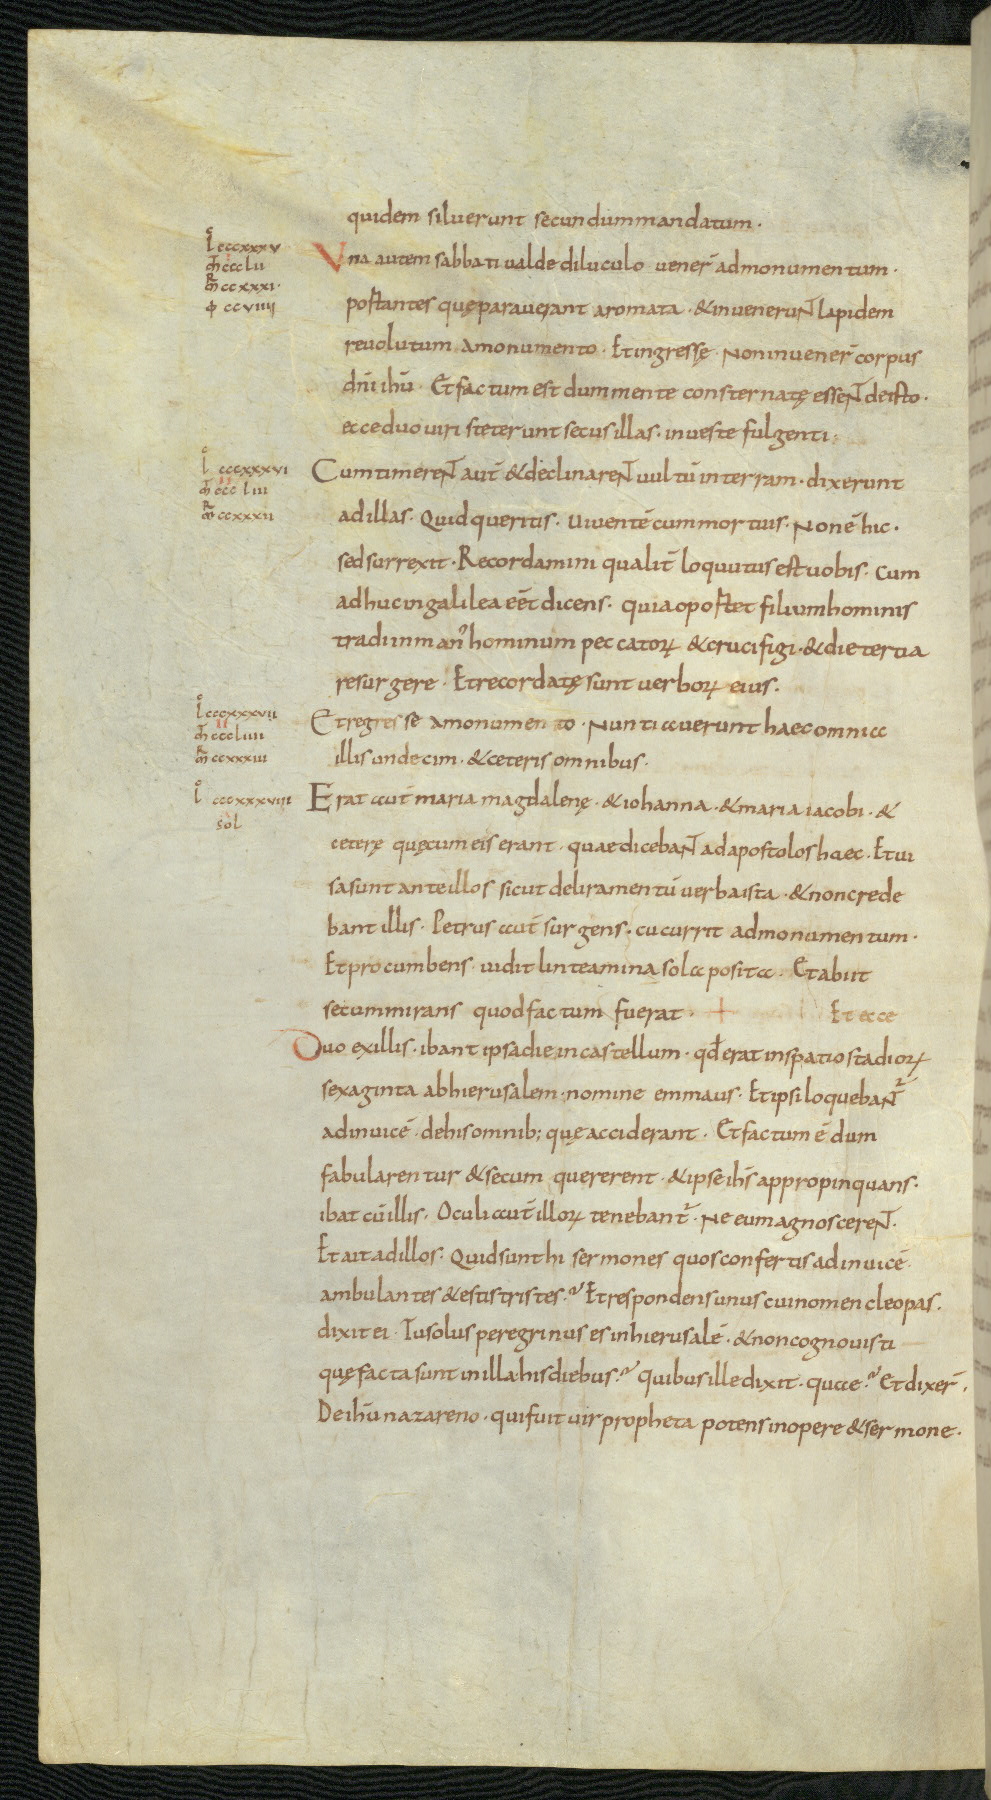 quidem siluerunt secundum mandatum·
l̊ cccxxxv
m̄ ccclii
mʀ ccxxxi·
ϕ ccviiii
Vna autem sabbati ualde diluculo uener̄ admonumentum·
portantes quę parauerant aromata· & inuenerunt̄ lapidem
reuolutum amonumento· Et ingressę· Non inuener̄ corpus
dn̄i ihū· Et factum est dum mente consternatę essent̄ de isto·
ecce duo uiri steterunt secus illas· in ueste fulgenti·
l̊ cccxxxvi
m̄ cccliii
mʀ ccxxxii
Cum timerent̄ aut̄ & declinarent̄ uultū in terram· dixerunt
ad illas· Quid queritis· Uiuentē cum mortuis· Non ē hic·
sed surrexit· Recordamini qualit̄ loquutus est uobis· Cum
adhuc in galilea eēt dicens· quia oportet filium hominis
tradi in man᾿ hominum peccatoꝝ & crucifigi· & die tertia
resurgere· Et recordatę sunt uerboꝝ eius·
l̊ cccxxxvii
m̄ cccliiii
mʀ ccxxxiii
Et regresse amonumento· Nuntiauerunt haec omnia
illis undecim· & ceteris omnibus·
l̊ cccxxxviii
sol
Erat aut̄ maria magdalenę· & iohanna· & maria iacobi· &
ceterę quę cum eis erant· quae dicebant̄ ad apostolos haec· Et ui
sa sunt ante illos sicut deliramentū uerba ista· & non crede
bant illis· Petrus aut̄ surgens· cucurrit admonumentum·
Et procumbens uidit linteamina sola posita· Et abiit
secum mirans quod factum fuerat· + Et ecce
Duo ex illis· ibant ipsa die in castellum· qd̄ erat in spatio stadioꝝ
sexaginta ab hierusalem· nomine emmaus· Et ipsi loquebant᷑
adinuicē· de his omnib; quę acciderant· Et factum ē dum
fabularentur & secum quererent· & ipse ihs̄ appropinquans·
ibat cū illis· Oculi aut̄ illoꝝ tenebant᷑· Ne eum agnoscerent̄·
Et ait ad illos· Quid sunt hi sermones quos confertis adinuicē
ambulantes & estis tristes·? Et respondens unus cui nomen cleopas·
dixit ei· Tu solus peregrinus es in hierusalē· & non cognouisti
quę facta sunt in illa· his diebus·? quibus ille dixit· quae·? Et dixer̄·
De ihū nazareno· qui fuit uir propheta potens in opere & sermone·